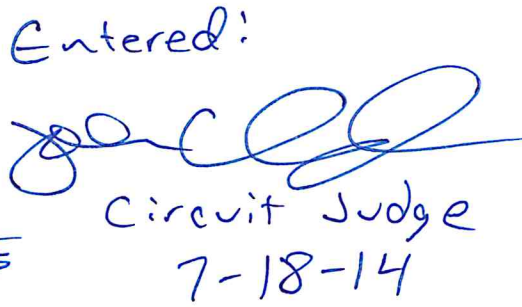 Entered:
Circuit Judge
5
7-18-14